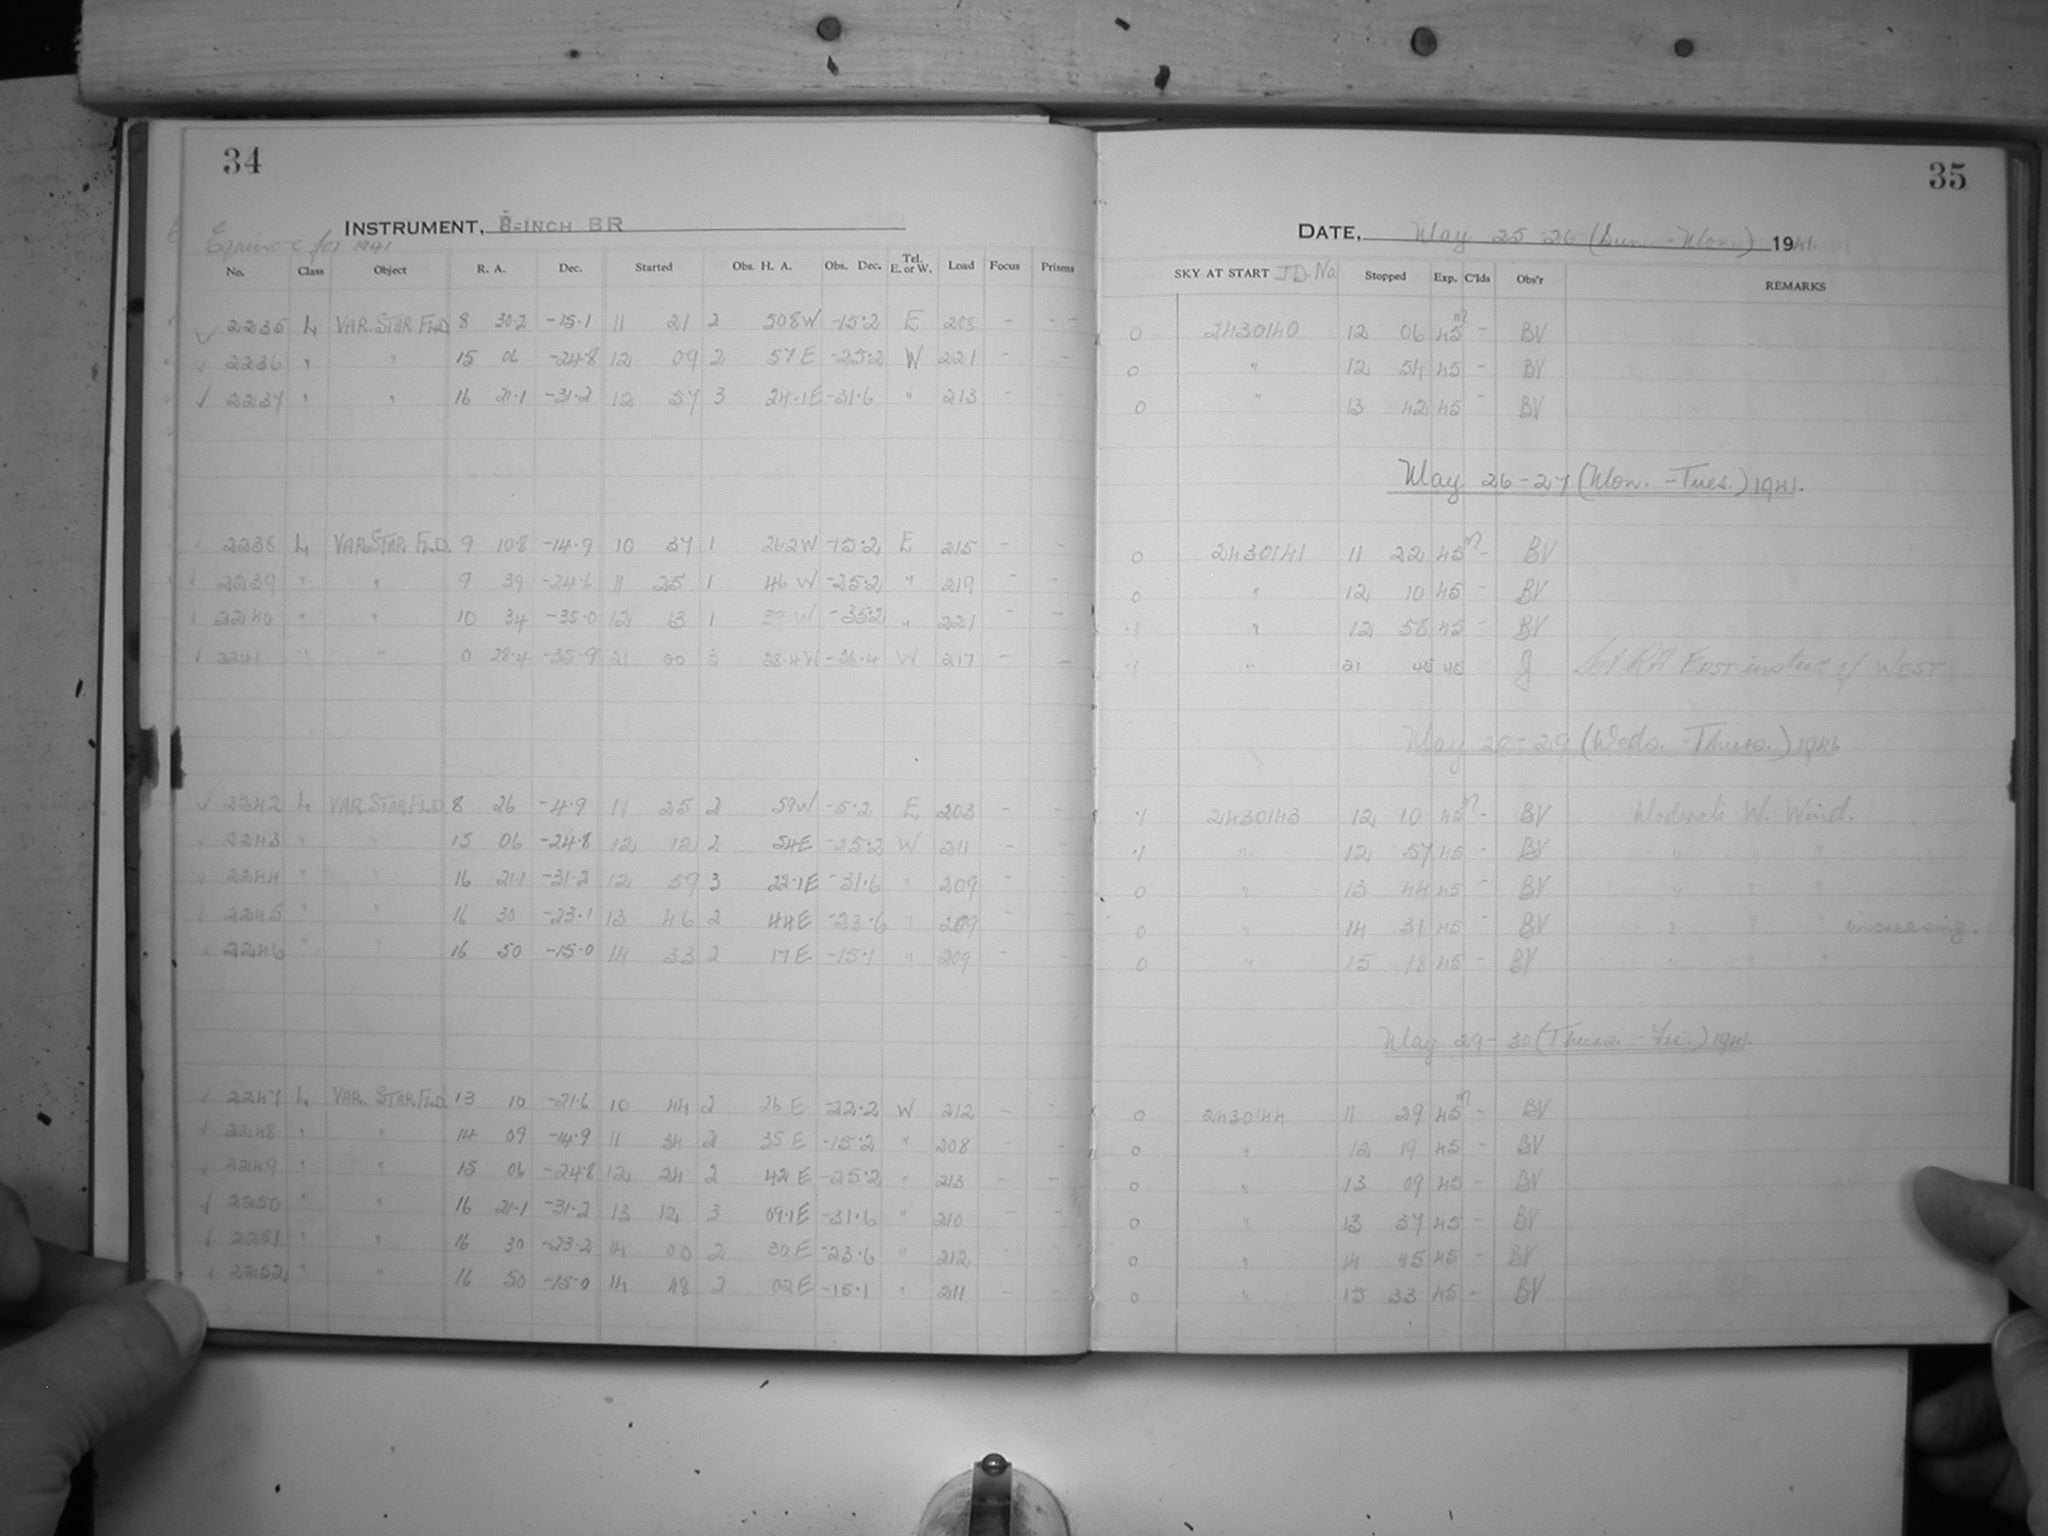 34
INSTRUMENT, 8-INCH BR
Equinox for 1941
No. Class Object R. A. Dec. Started Obs. H. A. Obs. Dec. Tel. E. or W. Load Focus Prisms
2235 L VAR. STAR FLD 8 30.2 -15.1 11 21 2 508W -15.2 E 208 - -
2236 " " 15 06 -24.8 12 09 2 57 E -25.2 W 221 - -
2237 " " 16 21.1 -31.2 12 57 3 24.1E -31.6 " 213 - -
2238 L VAR. STAR. FLD. 9 10.8 -14.9 10 37 1 26.2W -15.2 E 215 - -
2239 " " 9 39 -24.6 11 25 1 46 W -25.2 " 219 - -
2240 " " 10 34 -35.0 12 13 1 39 W -35.2 " 221 - -
2241 " " 0 28.4 -35.9 21 00 3 28.4W -36.4 W 217 - -
2242 L VAR. STAR FLD 8 26 -4.9 11 25 2 59W -5.2 E 203 - -
2243 " " 15 06 -24.8 12 12 2 54E -25.2 W 211 - -
2244 " " 16 21.1 -31.2 12 59 3 22.1E -31.6 " 209 - -
2245 " " 16 30 -23.1 13 46 2 44E -23.6 " 209 - -
2246 " " 16 50 -15.0 14 33 2 17E -15.1 " 209 - -
2247 L VAR. STAR FLD. 13 10 -21.6 10 44 2 26 E -22.2 W 212 - -
2248 " " 14 09 -14.9 11 34 2 35 E -15.2 " 208 - -
2249 " " 15 06 -24.8 12 24 2 42 E -25.2 " 213 - -
2250 " " 16 21.1 -31.2 13 12 3 09.1E -31.6 " 210 - -
2251 " " 16 30 -23.2 14 00 2 30 E -23.6 " 212 - -
2252 " " 16 50 -15.0 14 48 2 02E -15.1 " 211 - -
35
DATE, May 25-26 (Sun. - Mon.) 1941.
SKY AT START JD. No Stopped Exp. C'lds Obs'r REMARKS
0 2430140 12 06 45m - BV
0 " 12 54 45 - BV
0 " 13 42 45 - BV
May 26-27 (Mon. - Tues.) 1941.
0 2430141 11 22 45m - BV
0 " 12 10 45 - BV
.1 " 12 58 45 - BV
.1 " 21 45 45 J Set RA EAST instead of WEST
May 28-29 (Weds. - Thurs.) 1941
.1 2430143 12 10 45m - BV Moderate W. Wind.
.1 " 12 57 45 - BV " " "
0 " 13 44 45 - BV " " "
0 " 14 31 45 - BV " " " increasing.
0 " 15 18 45 - BV " " "
May 29-30 (Thurs. - Fri.) 1941.
0 2430144 11 29 45m - BV
0 " 12 19 45 - BV
0 " 13 09 45 - BV
0 " 13 57 45 - BV
0 " 14 45 45 - BV
0 " 15 33 45 - BV